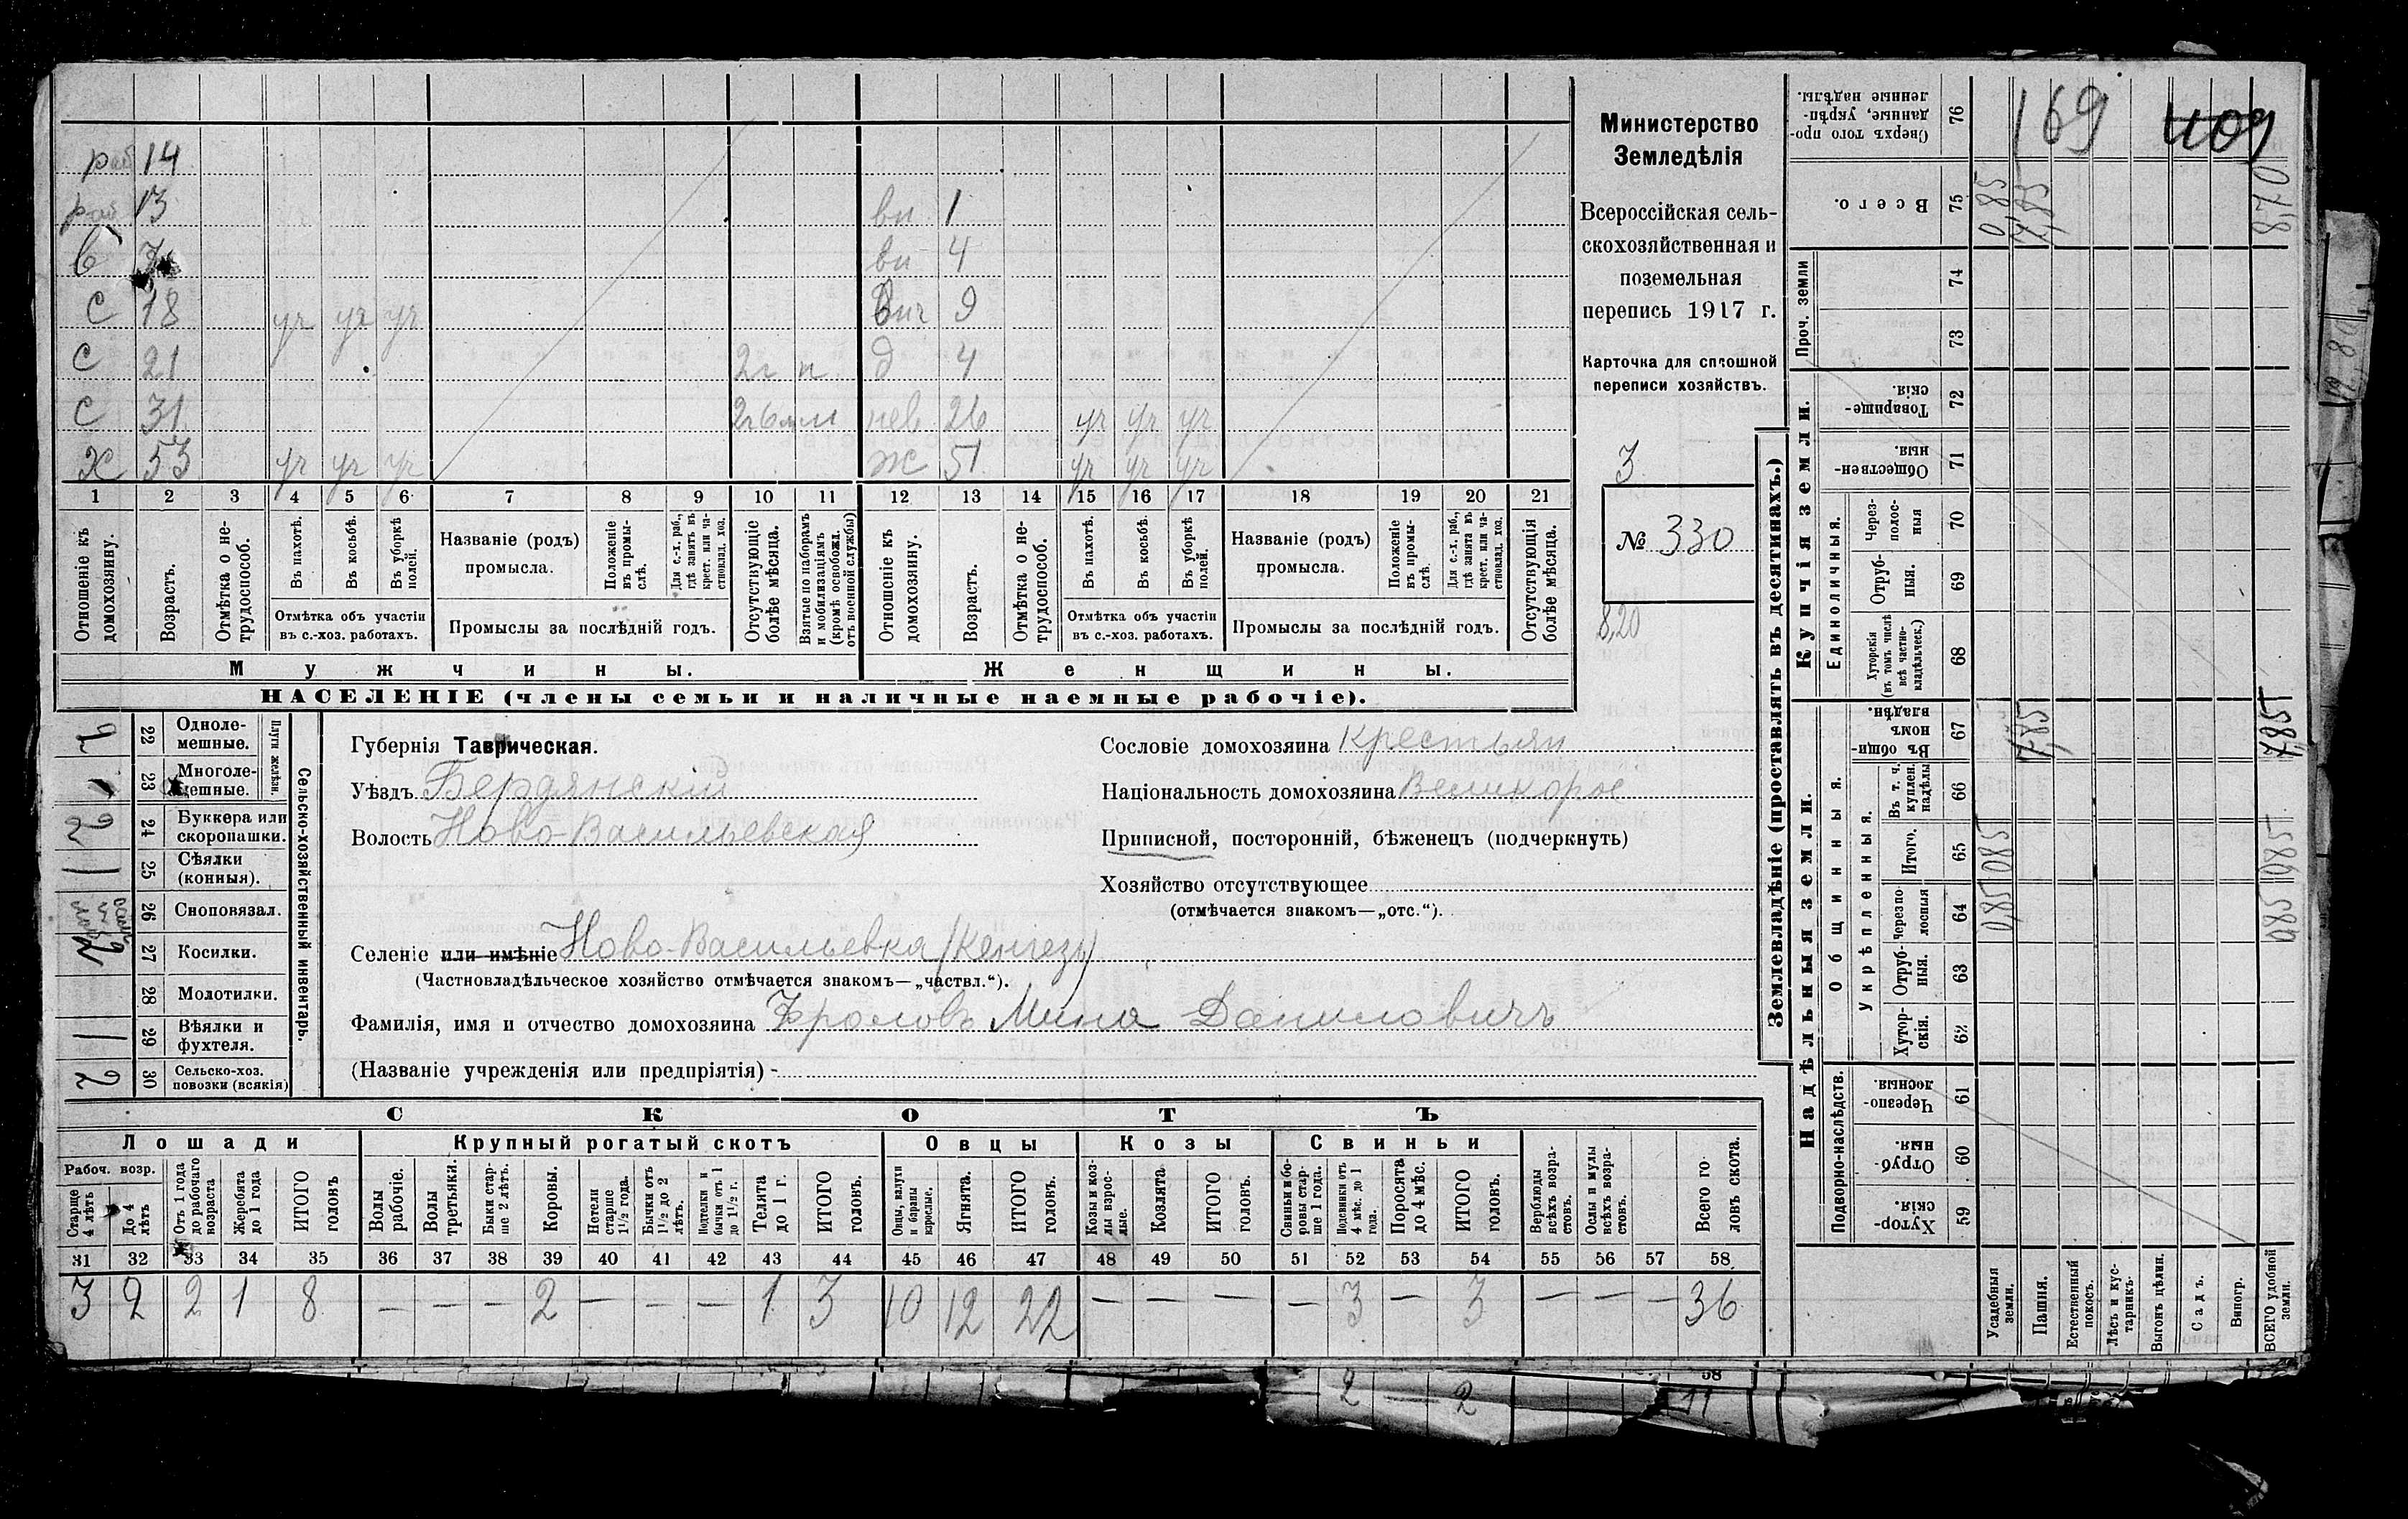 раб 14
раб 13 вн 1
в 7 вн 4
с 18 уч уч уч вну 9
с 21 2г п д 4
с 31 2г6м м нев 26 уч уч уч
х 53 уч уч уч ж 51 уч уч уч
1 2 3 4 5 6 7 8 9 10 11 12 13 14 15 16 17 18 19 20 21
Отношеніе къ домохозяину.
Возрастъ.
Отмѣтка о нетрудоспособ.
Въ пахотѣ.
Въ косьбѣ.
Въ уборкѣ полей.
Отмѣтка объ участіи
въ с.-хоз. работахъ.
Названіе (родъ)
промысла.
Положеніе въ промыслѣ.
Для с.-х. раб., гдѣ занятъ въ крест. или частновлад. хоз.
Промыслы за послѣдній годъ.
Отсутствующіе болѣе мѣсяца.
Взятые по наборамъ и мобилизаціямъ (кромѣ освобожд. отъ военной службы)
Отношеніе къ домохозяину.
Возрастъ.
Отмѣтка о нетрудоспособ.
Въ пахотѣ.
Въ косьбѣ.
Въ уборкѣ полей.
Отмѣтка объ участіи
въ с.-хоз. работахъ.
Названіе (родъ)
промысла.
Положеніе въ промыслѣ.
Для с.-х. раб., гдѣ занята въ крест. или частновлад. хоз.
Промыслы за послѣдній годъ.
Отсутствующія болѣе мѣсяца.
Мужчины.
Женщины.
НАСЕЛЕНІЕ (члены семьи и наличные наемные рабочіе).
Министерство
Земледѣлія
Всероссійская сель-
скохозяйственная и
поземельная
перепись 1917 г.
Карточка для сплошной
переписи хозяйствъ.
3
№ 330
8,20
2 22 Одноле-
мешные.
- 23 Многоле-
мешные.
Плуги желѣзн.
2 24 Буккера или
скоропашки.
1 25 Сѣялки
(конныя).
26 Сноповязал.
2 27 Косилки.
28 Молотилки.
1 29 Вѣялки и
фухтеля.
2 30 Сельско-хоз.
повозки (всякія)
Сельско-хозяйственный инвентарь.
Губернія Таврическая.
Уѣздъ Бердянскій
Волость Ново-Васильевская
Селеніе или имѣніе Ново-Васильевка (Кенгезъ)
(Частновладѣльческое хозяйство отмѣчается знакомъ—„частвл.“).
Фамилія, имя и отчество домохозяина Фроловъ Мина Даниловичъ
(Названіе учрежденія или предпріятія) -
Сословіе домохозяина крестьян
Національность домохозяина Великорос
Приписной, посторонній, бѣженецъ (подчеркнуть)
Хозяйство отсутствующее
(отмѣчается знакомъ—„отс.“).
СКОТЪ
Лошади Крупный рогатый скотъ Овцы Козы Свиньи
Рабоч. возр.
Старше 4 лѣтъ
До 4 лѣтъ
Отъ 1 года до рабочаго возраста
Жеребята до 1 года
ИТОГО головъ
Волы рабочіе.
Волы третьяки.
Быки старше 2 лѣтъ.
Коровы.
Нетели старше 1½ года.
Бычки отъ 1½ до 2 лѣтъ.
Подтелки и бычки отъ 1 до 1½ г.
Телята до 1 г.
ИТОГО головъ.
Овцы, валухи и бараны взрослые.
Ягнята.
ИТОГО головъ.
Козы и козлы взрослые.
Козлята.
ИТОГО головъ.
Свиньи и боровы старше 1 года.
Подсвинки отъ 4 мѣс. до 1 года.
Поросята до 4 мѣс.
ИТОГО головъ.
Верблюды всѣхъ возрастовъ.
Ослы и мулы всѣхъ возрастовъ.
Всего головъ скота.
31 32 33 34 35 36 37 38 39 40 41 42 43 44 45 46 47 48 49 50 51 52 53 54 55 56 57 58
3 2 2 1 8 — — — 2 — — — 1 3 10 12 22 — — — — 3 — 3 — — — 36
Землевладѣніе (проставлять въ десятинахъ.)
Сверхъ того проданные, укрѣпленные надѣлы. 76 169 409
Всего. 75 0,85 7,85 8,70
Проч. земли 74
73
Купчія земли.
Товарищескія. 72
Общественныя. 71
Единоличныя.
Черезполосныя 70
Отрубныя. 69
Хуторскія (въ томъ числѣ всѣ частновладѣльческ.) 68
Надѣльныя земли.
Общинныя.
Въ общинномъ владѣн. 67 7,85 7,85
Укрѣпленныя.
Въ т. ч. куплен. надѣлы 66
Итого. 65 0,85 0,85
Черезполосныя 64 0,85 0,85
Отрубныя. 63
Хуторскія. 62
Подворно-наслѣдств.
Черезполосныя. 61
Отрубныя. 60
Хуторскія. 59
Усадебныя земли.
Пашня.
Естественный покосъ.
Лѣсъ и кустарникъ.
Выгонъ цѣлин.
Садъ.
Виногр.
ВСЕГО удобной земли.
2 2 58
11